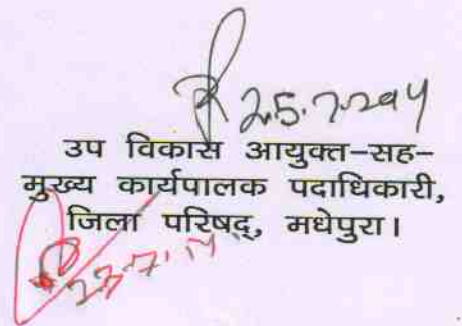 25.7.2014
उप विकास आयुक्त-सह-
मुख्य कार्यपालक पदाधिकारी,
जिला परिषद्, मधेपुरा।
23.7.14